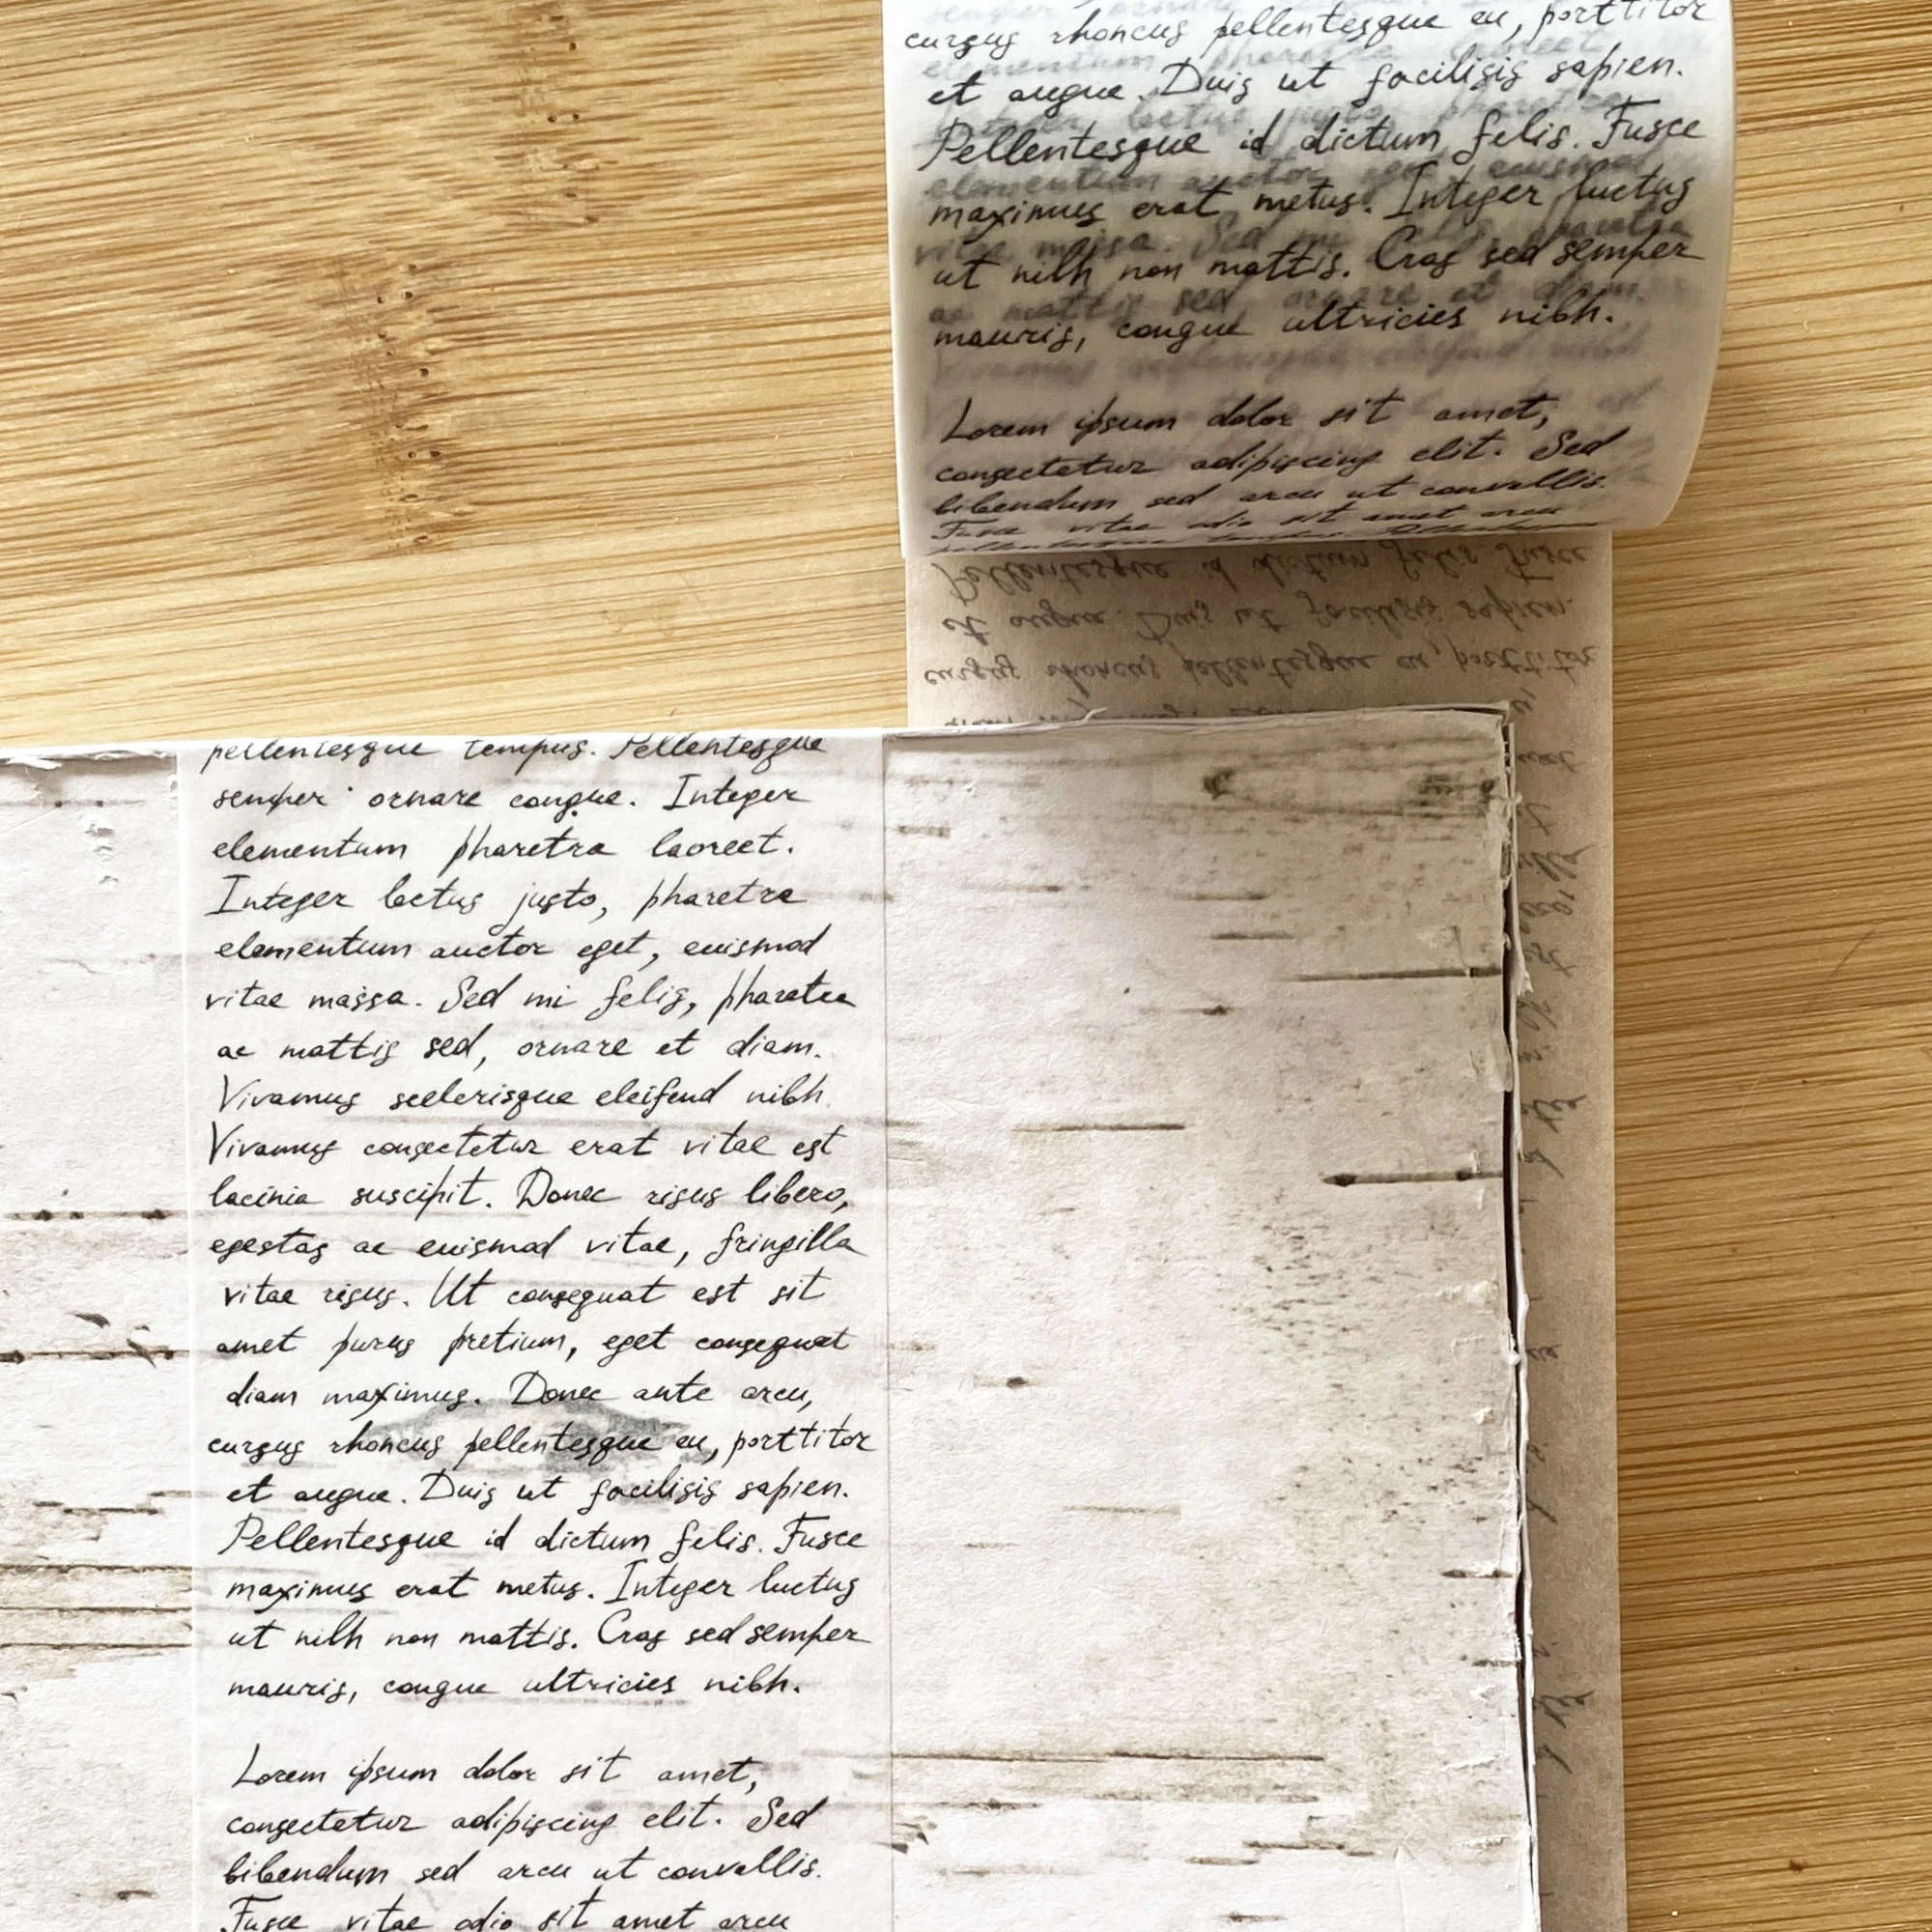 cursus rhoncus pellentesque eu, porttitor
et augue. Duis ut facilisis sapien.
Pellentesque id dictum felis. Fusce
maximus erat metus. Integer luctus
ut nibh non mattis. Cras sed semper
mauris, congue ultricies nibh.
Lorem ipsum dolor sit amet,
consectetur adipiscing elit. Sed
bibendum sed arcu ut convallis.
Fusce vitae odio sit amet arcu
Pellentesque id dictum felis. Fusce
et augue. Duis ut facilisis sapien.
cursus rhoncus pellentesque eu, porttitor
pellentesque tempus. Pellentesque
semper ornare congue. Integer
elementum pharetra laoreet.
Integer lectus justo, pharetra
elementum auctor eget, euismod
vitae massa. Sed mi felis, pharetra
ac mattis sed, ornare et diam.
Vivamus scelerisque eleifend nibh
Vivamus consectetur erat vitae est
lacinia suscipit. Donec risus libero,
egestas ac euismod vitae, fringilla
vitae risus. Ut consequat est sit
amet purus pretium, eget consequat
diam maximus. Donec ante arcu,
cursus rhoncus pellentesque eu, porttitor
et augue. Duis ut facilisis sapien.
Pellentesque id dictum felis. Fusce
maximus erat metus. Integer luctus
ut nibh non mattis. Cras sed semper
mauris, congue ultricies nibh.
Lorem ipsum dolor sit amet,
consectetur adipiscing elit. Sed
bibendum sed arcu ut convallis.
Fusce vitae odio sit amet arcu